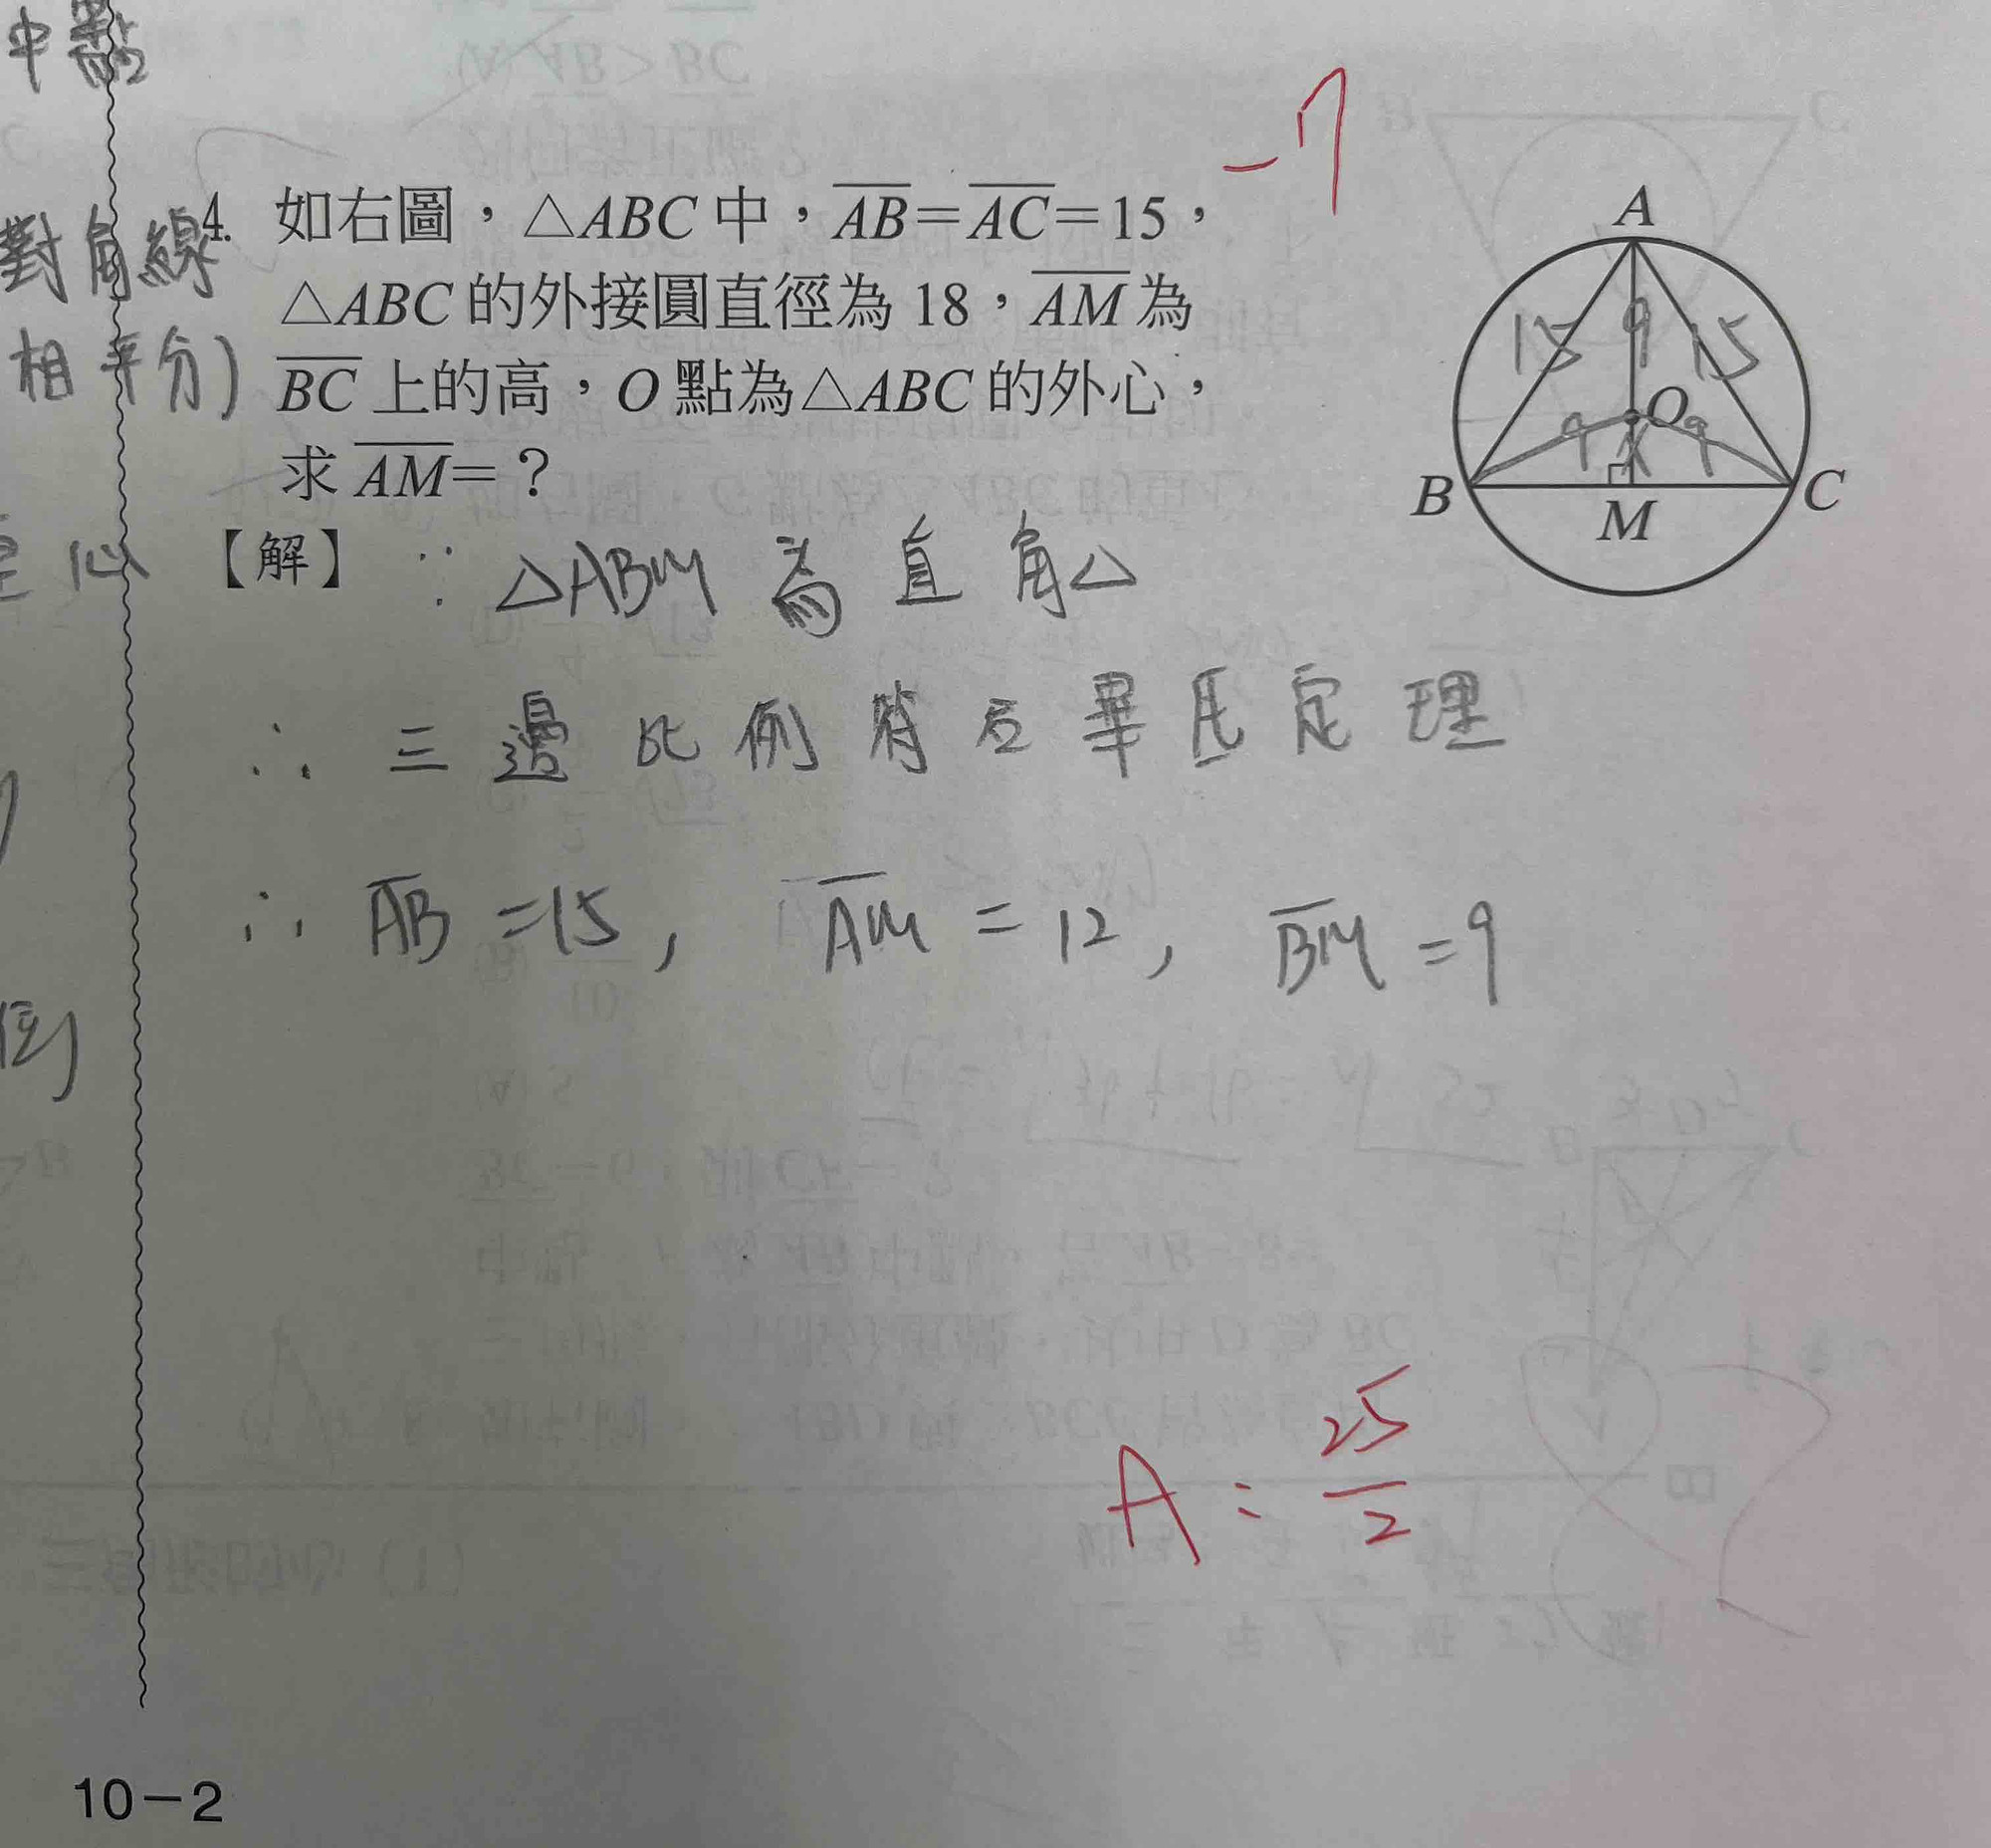 中點
對角線
相平分)
心
-7
4. 如右圖，△ABC中，AB=AC=15，
△ABC的外接圓直徑為 18，AM為
BC上的高，O點為△ABC的外心，
求AM=？
A
15 9 15
O
9 x 9
B M C
【解】 ∵ △ABM 為直角△
∴ 三邊比例符合畢氏定理
∴ AB=15, AM=12, BM=9
A: 25/2
10-2